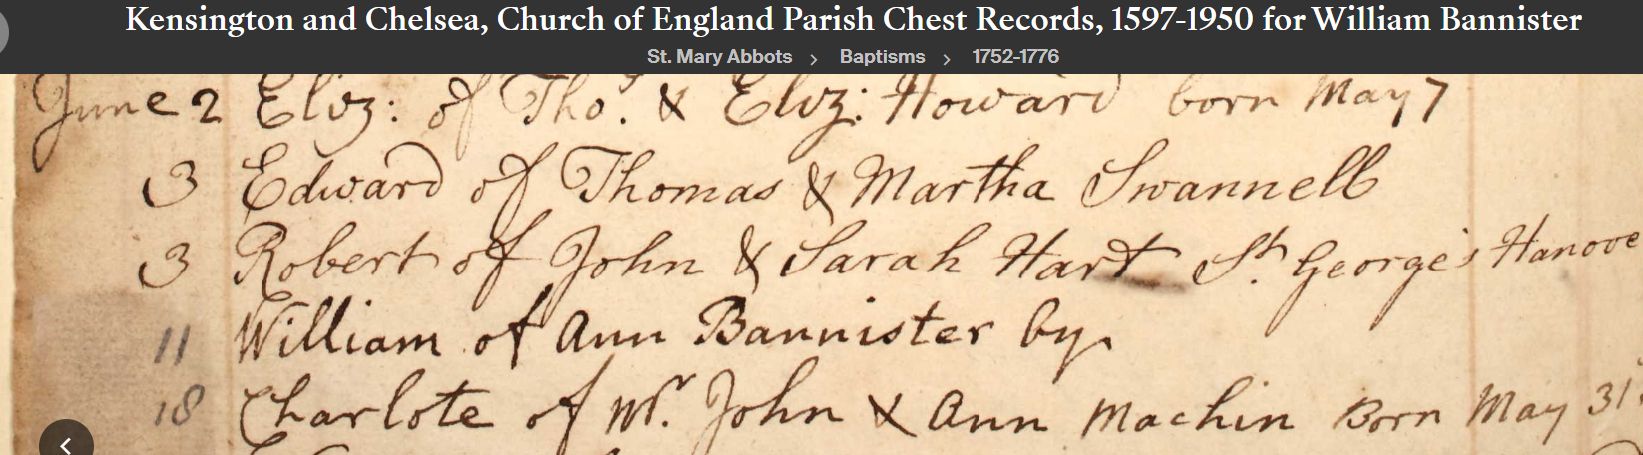 Kensington and Chelsea, Church of England Parish Chest Records, 1597-1950 for William Bannister
St. Mary Abbots > Baptisms > 1752-1776
June 2 Eliz: of Tho.s & Eliz: Howard born May 7
3 Edward of Thomas & Martha Swannell
3 Robert of John & Sarah Hart St. George's Hanove
11 William of Ann Bannister by
18 Charlote of Mr. John & Ann Machin Born May 31